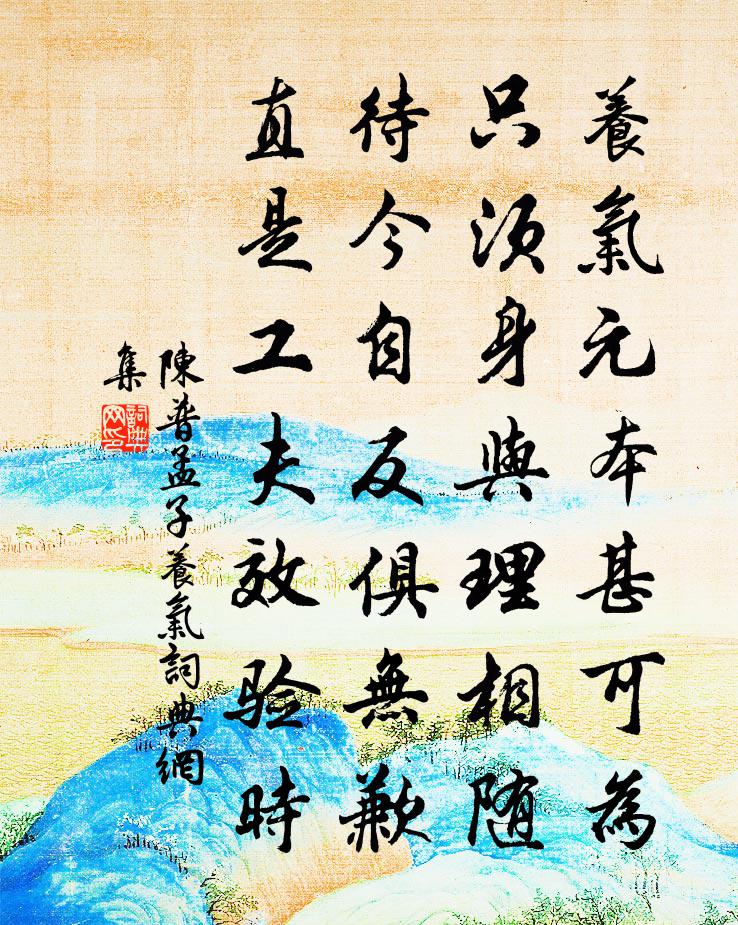 養氣元本甚可為
只須身與理相随
待今自反俱無歉
直是工夫效验時
陳普孟子養氣詞典網
集
詞典网印